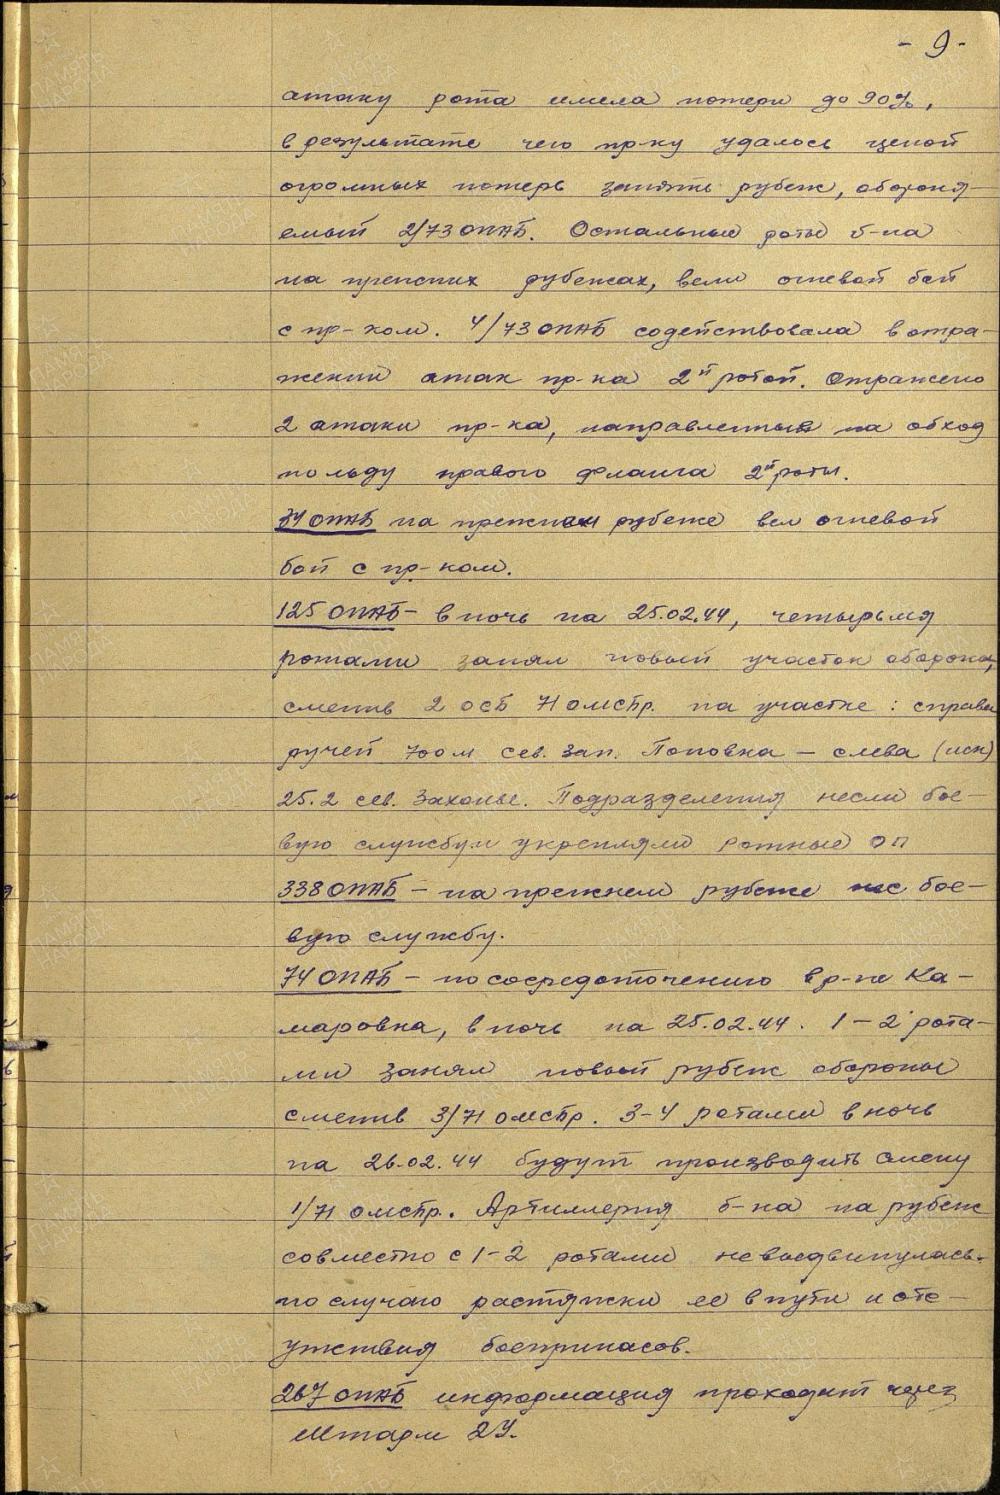 - 9 -
атаку рота имела потери до 90%,
в результате чего пр-ку удалось ценой
огромных потерь занять рубеж, обороня-
емый 2/73 ОПАБ. Остальные роты б-на
на прежних рубежах, вели огневой бой
с пр-ком. 4/73 ОПАБ содействовала в отра-
жении атак пр-ка 2й ротой. Отражено
2 атаки пр-ка, направленные на обход
по льду правого фланга 2й роты.
34 ОПАБ на прежнем рубеже вел огневой
бой с пр-ком.
125 ОПАБ - в ночь на 25.02.44, четырьмя
ротами занял новый участок обороны,
сменив 2 осб 71 омстр. на участке: справа
ручей 700 м сев. зап. Поповка - слева (иск)
25.2 сев. Захонье. Подразделения несли бое-
вую службу и укрепляли ротные ОП
338 ОПАБ - на прежнем рубеже нес бое-
вую службу.
74 ОПАБ - по сосредоточению в р-не Ка-
маровка, в ночь на 25.02.44. 1-2 рота-
ми занял новый рубеж обороны
сменив 3/71 омстр. 3-4 ротами в ночь
на 26.02.44 будут производить смену
1/71 омстр. Артиллерия б-на на рубеж
совместно с 1-2 ротами не выдвинулась.
по случаю растяжки ее в пути и отс-
утствия боеприпасов.
267 ОПАБ информация проходит через
Штарм 2У.
ПАМЯТЬ НАРОДА